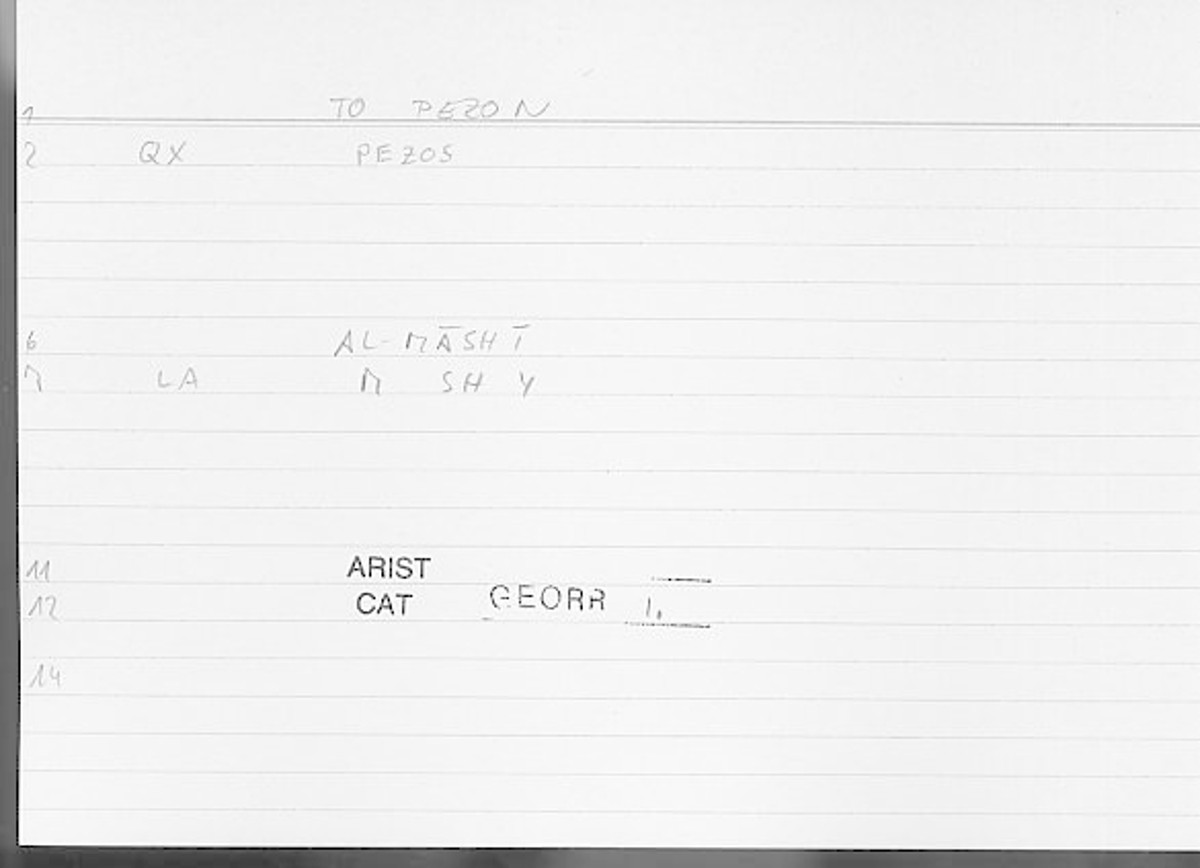 1 TO PEZON
2 QX PEZOS
6 AL-MĀSHĪ
7 LA M SH Y
11 ARIST
12 CAT GEORR 1,
14